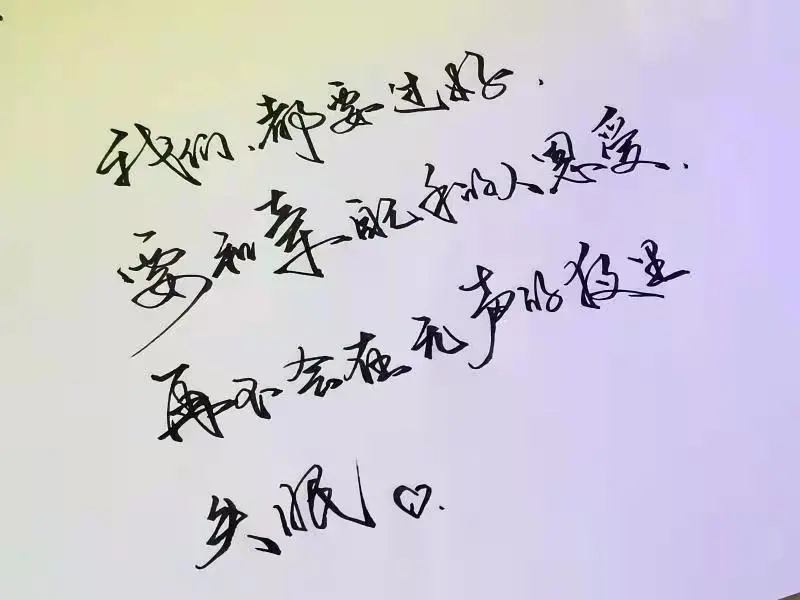 我们都要过好.
要和手的人恩爱.
再不会在无声的夜里
失眠♡.